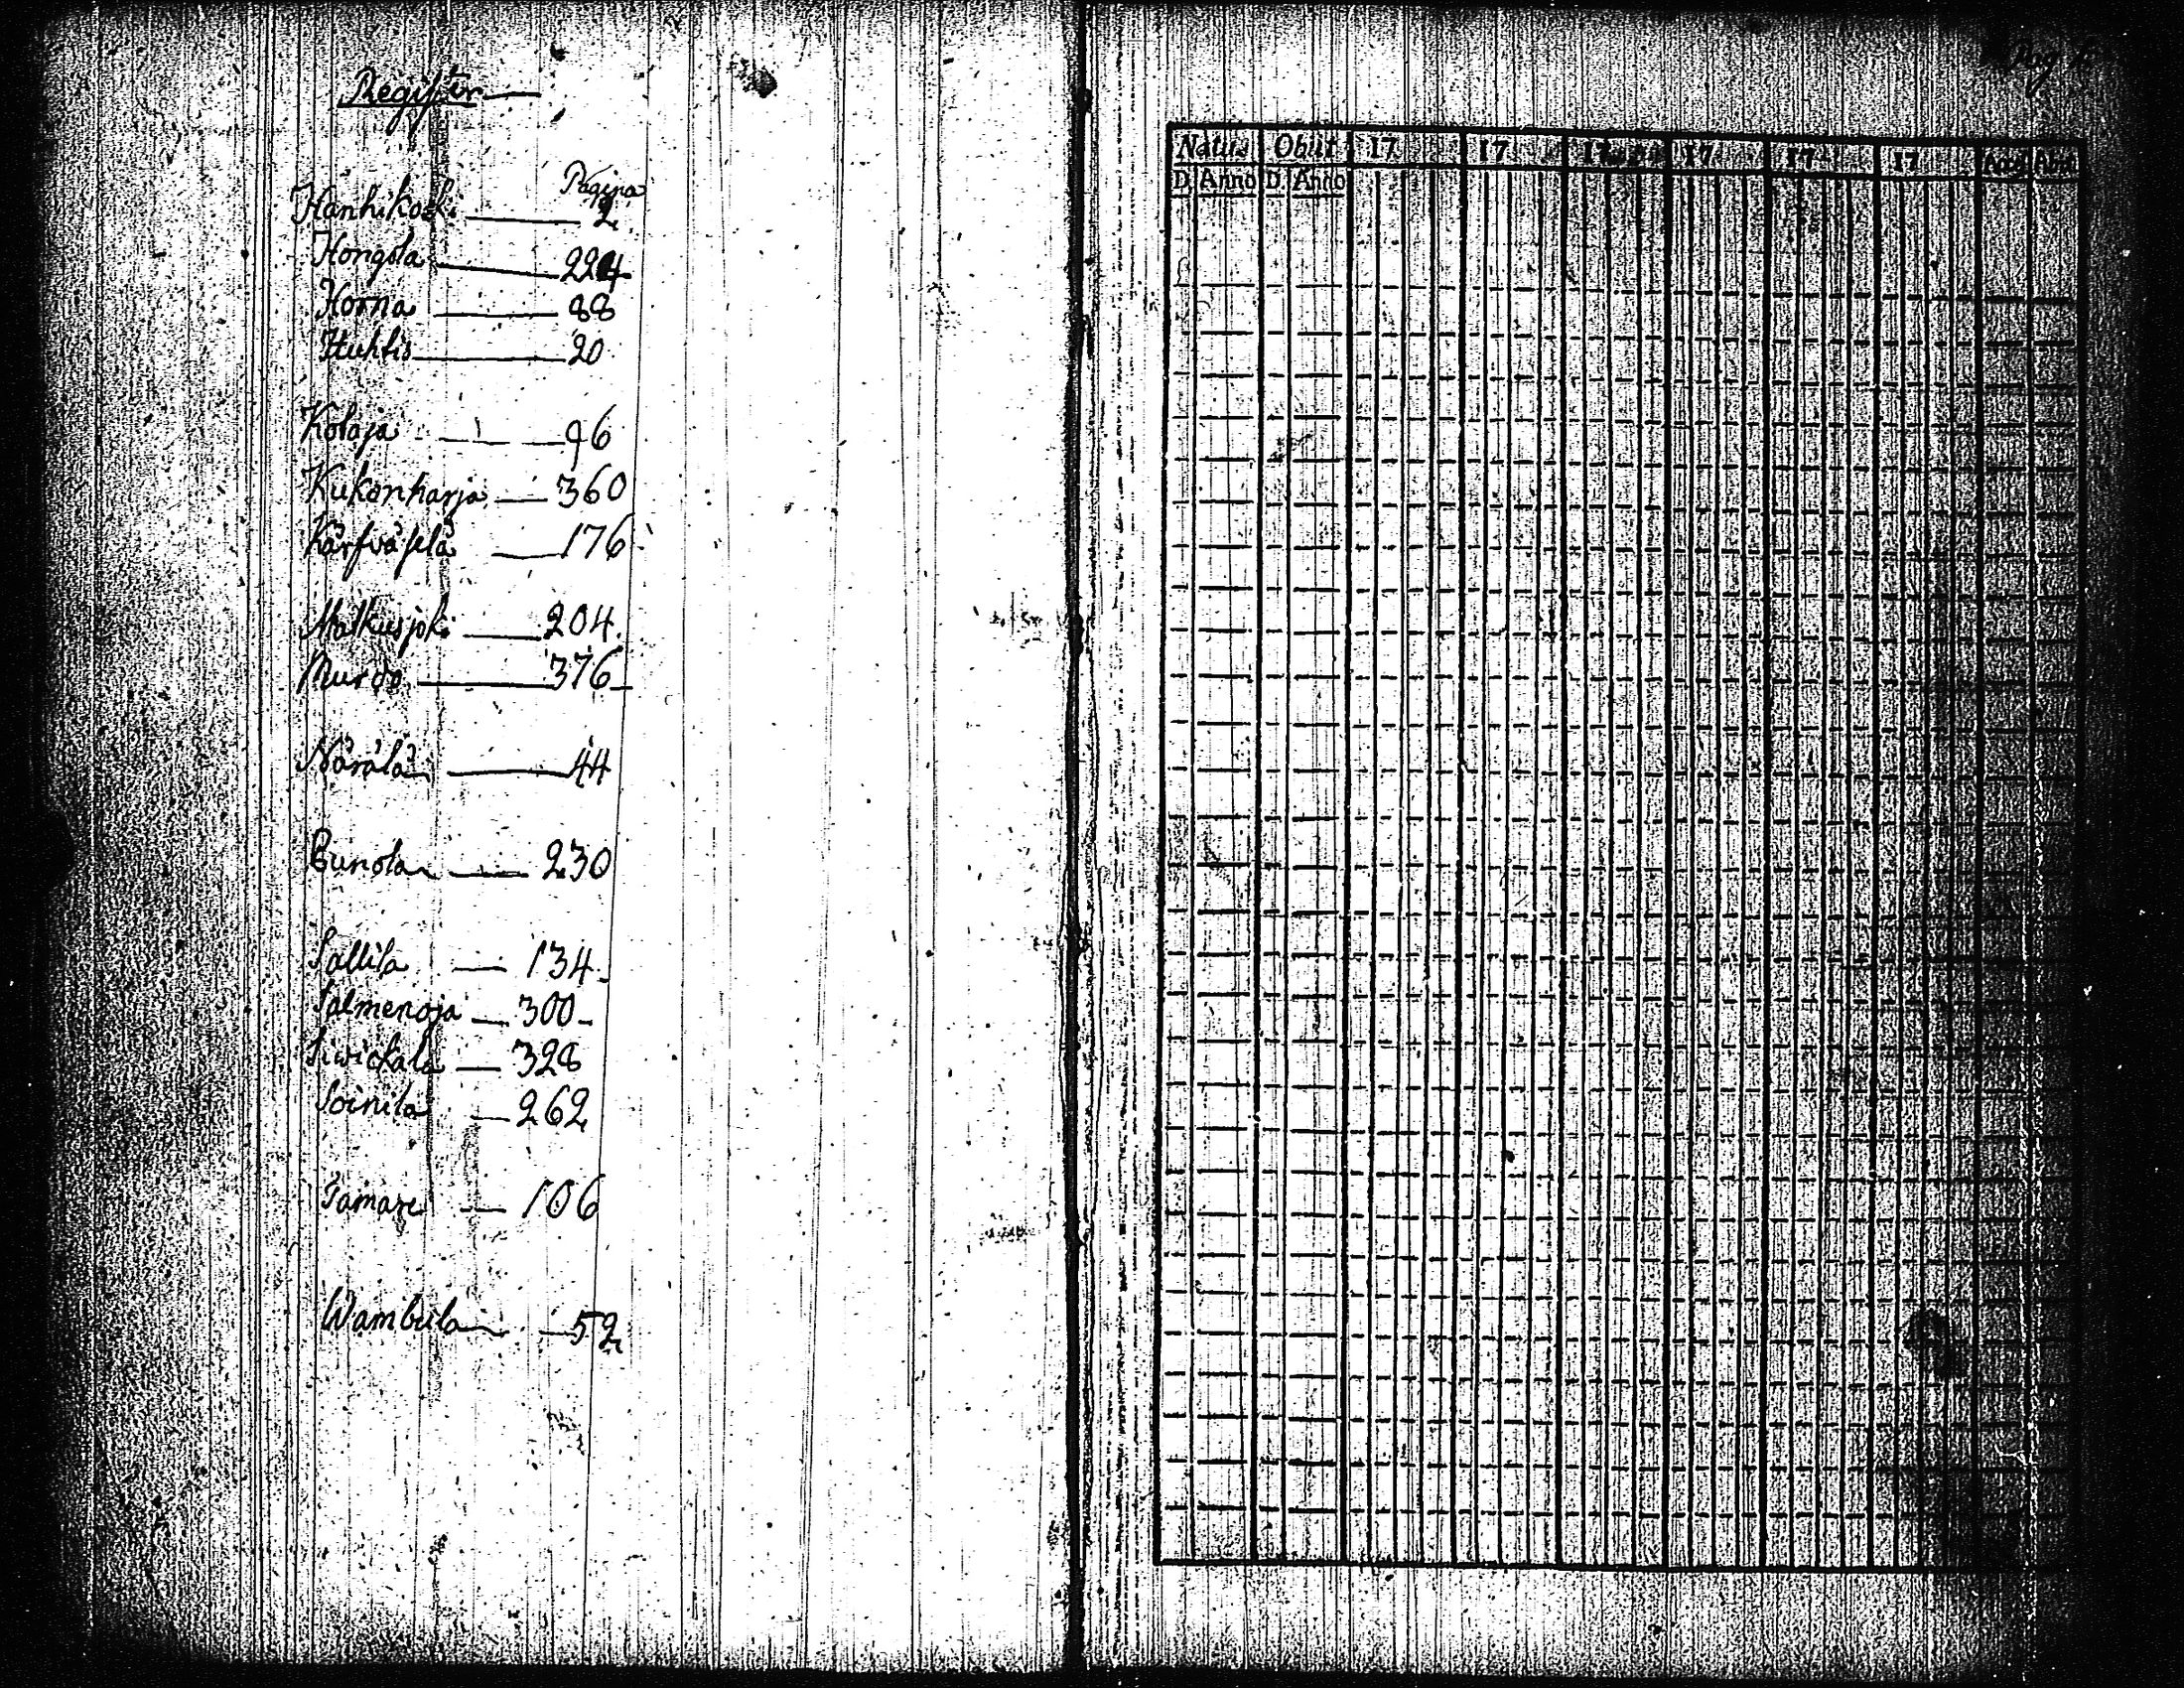 Register
Pagina
Hanhikoski 2
Hongola 224
Horna 88
Huhtis 20
Kolaja 96
Kukonharja 360
Kärfväselä 176
Matkusjoki 204
Murdo 376
Närälä 44
Punola 230
Sallila 134
Salmenoja 300
Siwickala 328
Soinila 262
Tamare 106
Wambula 52
Pag
Natus Obiit 17 17 17 17 17 17
D. Anno D. Anno